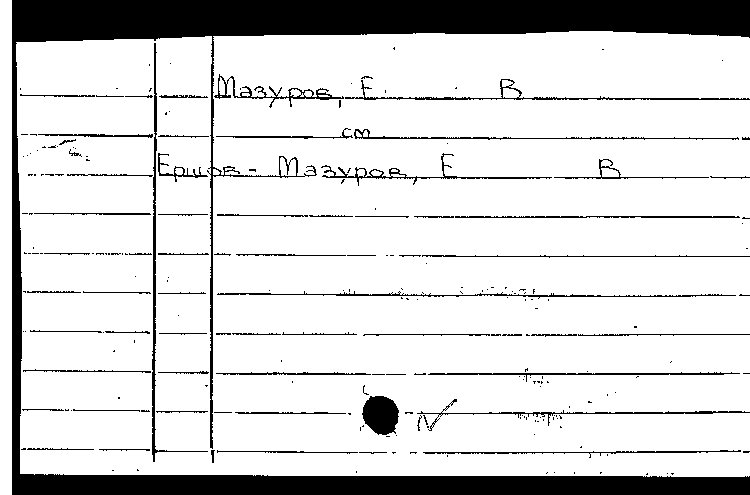 Мазуров, Е. В
см
Ершов - Мазуров, Е В